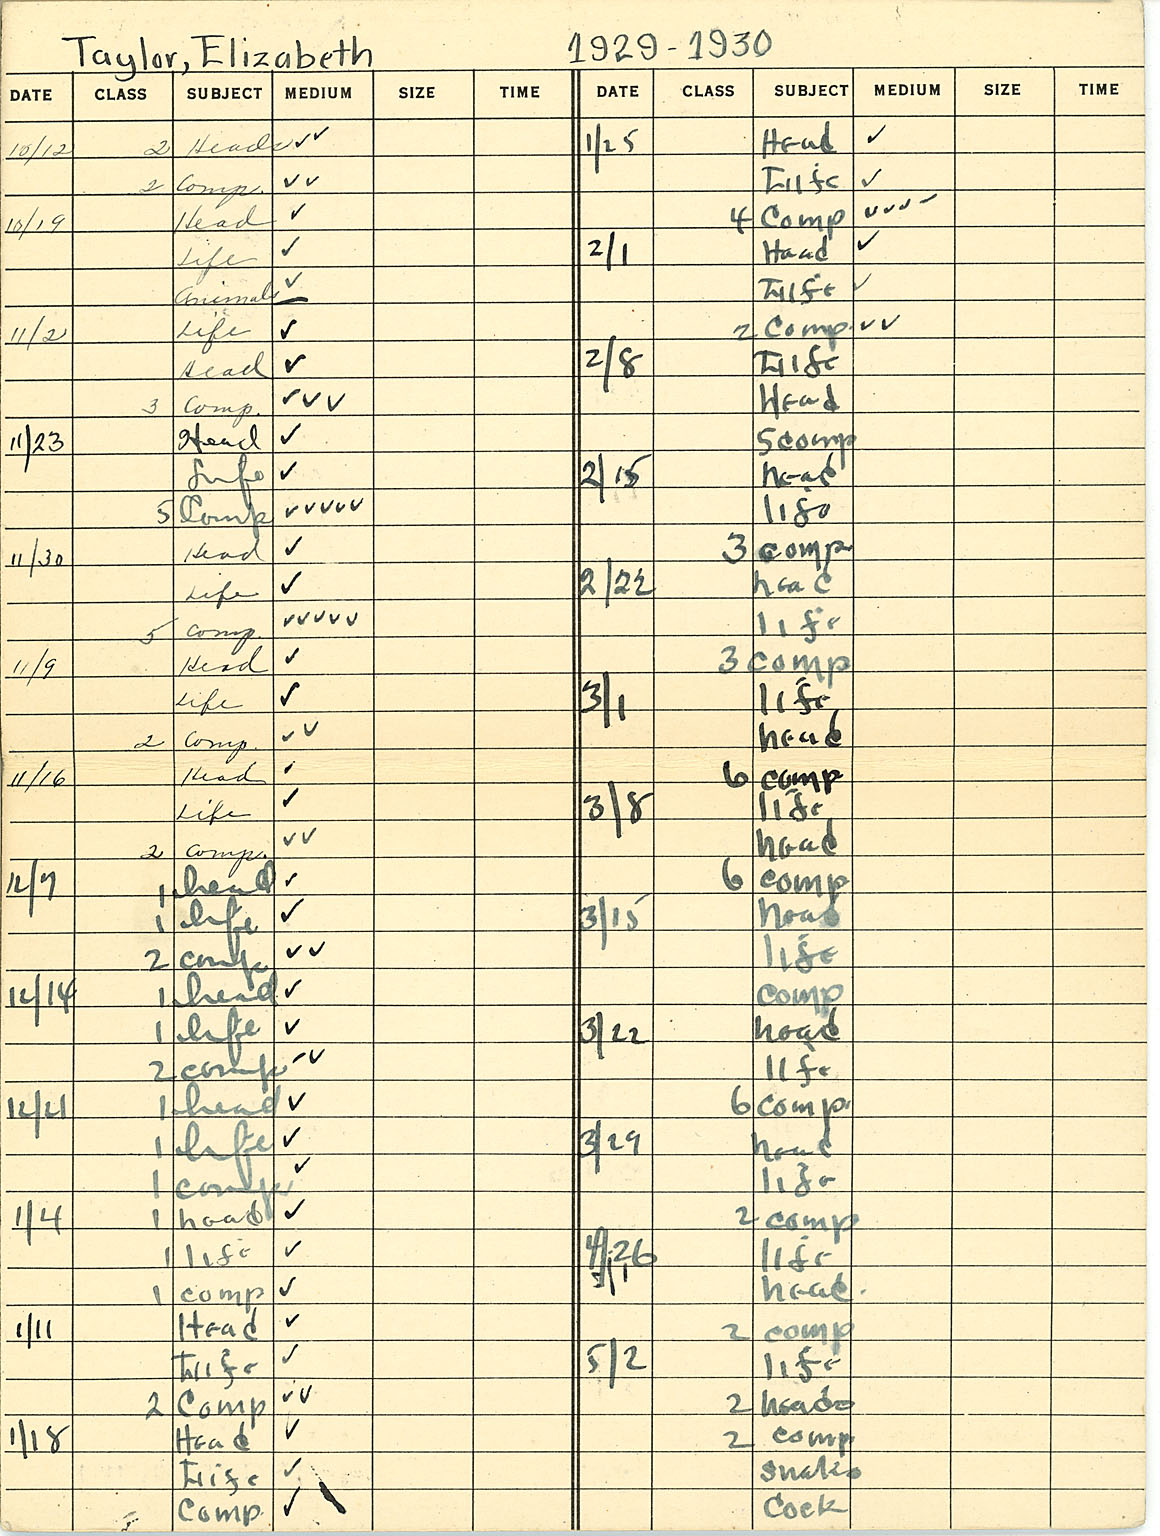 Taylor, Elizabeth 1929-1930
DATE CLASS SUBJECT MEDIUM SIZE TIME DATE CLASS SUBJECT MEDIUM SIZE TIME
10/12 2 Heads ✓✓
2 Comp. ✓✓
10/19 Head ✓
Life ✓
Animals ✓
11/2 Life ✓
Head ✓
3 Comp. ✓✓✓
11/23 Head ✓
Life ✓
5 Comp ✓✓✓✓✓
11/30 Head ✓
Life ✓
5 Comp. ✓✓✓✓✓
11/9 Head ✓
Life ✓
2 Comp. ✓✓
11/16 Head ✓
Life ✓
2 Comp. ✓✓
12/7 1 head ✓
1 life ✓
2 comp ✓✓
12/14 1 head ✓
1 life ✓
2 comp ✓✓
12/21 1 head ✓
1 life ✓
1 comp ✓
1/4 1 head ✓
1 life ✓
1 comp ✓
1/11 Head ✓
Life ✓
2 Comp ✓✓
1/18 Head ✓
Life ✓
Comp ✓
1/25 Head ✓
Life ✓
4 Comp ✓✓✓✓
2/1 Head ✓
Life ✓
2 Comp. ✓✓
2/8 Life
Head
5 comp
2/15 head
life
3 comp
2/22 head
life
3 comp
3/1 life
head
6 comp
3/8 life
head
6 comp
3/15 head
life
comp
3/22 head
life
6 comp.
3/29 head
life
2 comp
4/26 life
head.
2 comp
5/2 life
2 heads
2 comp
snake
Cock